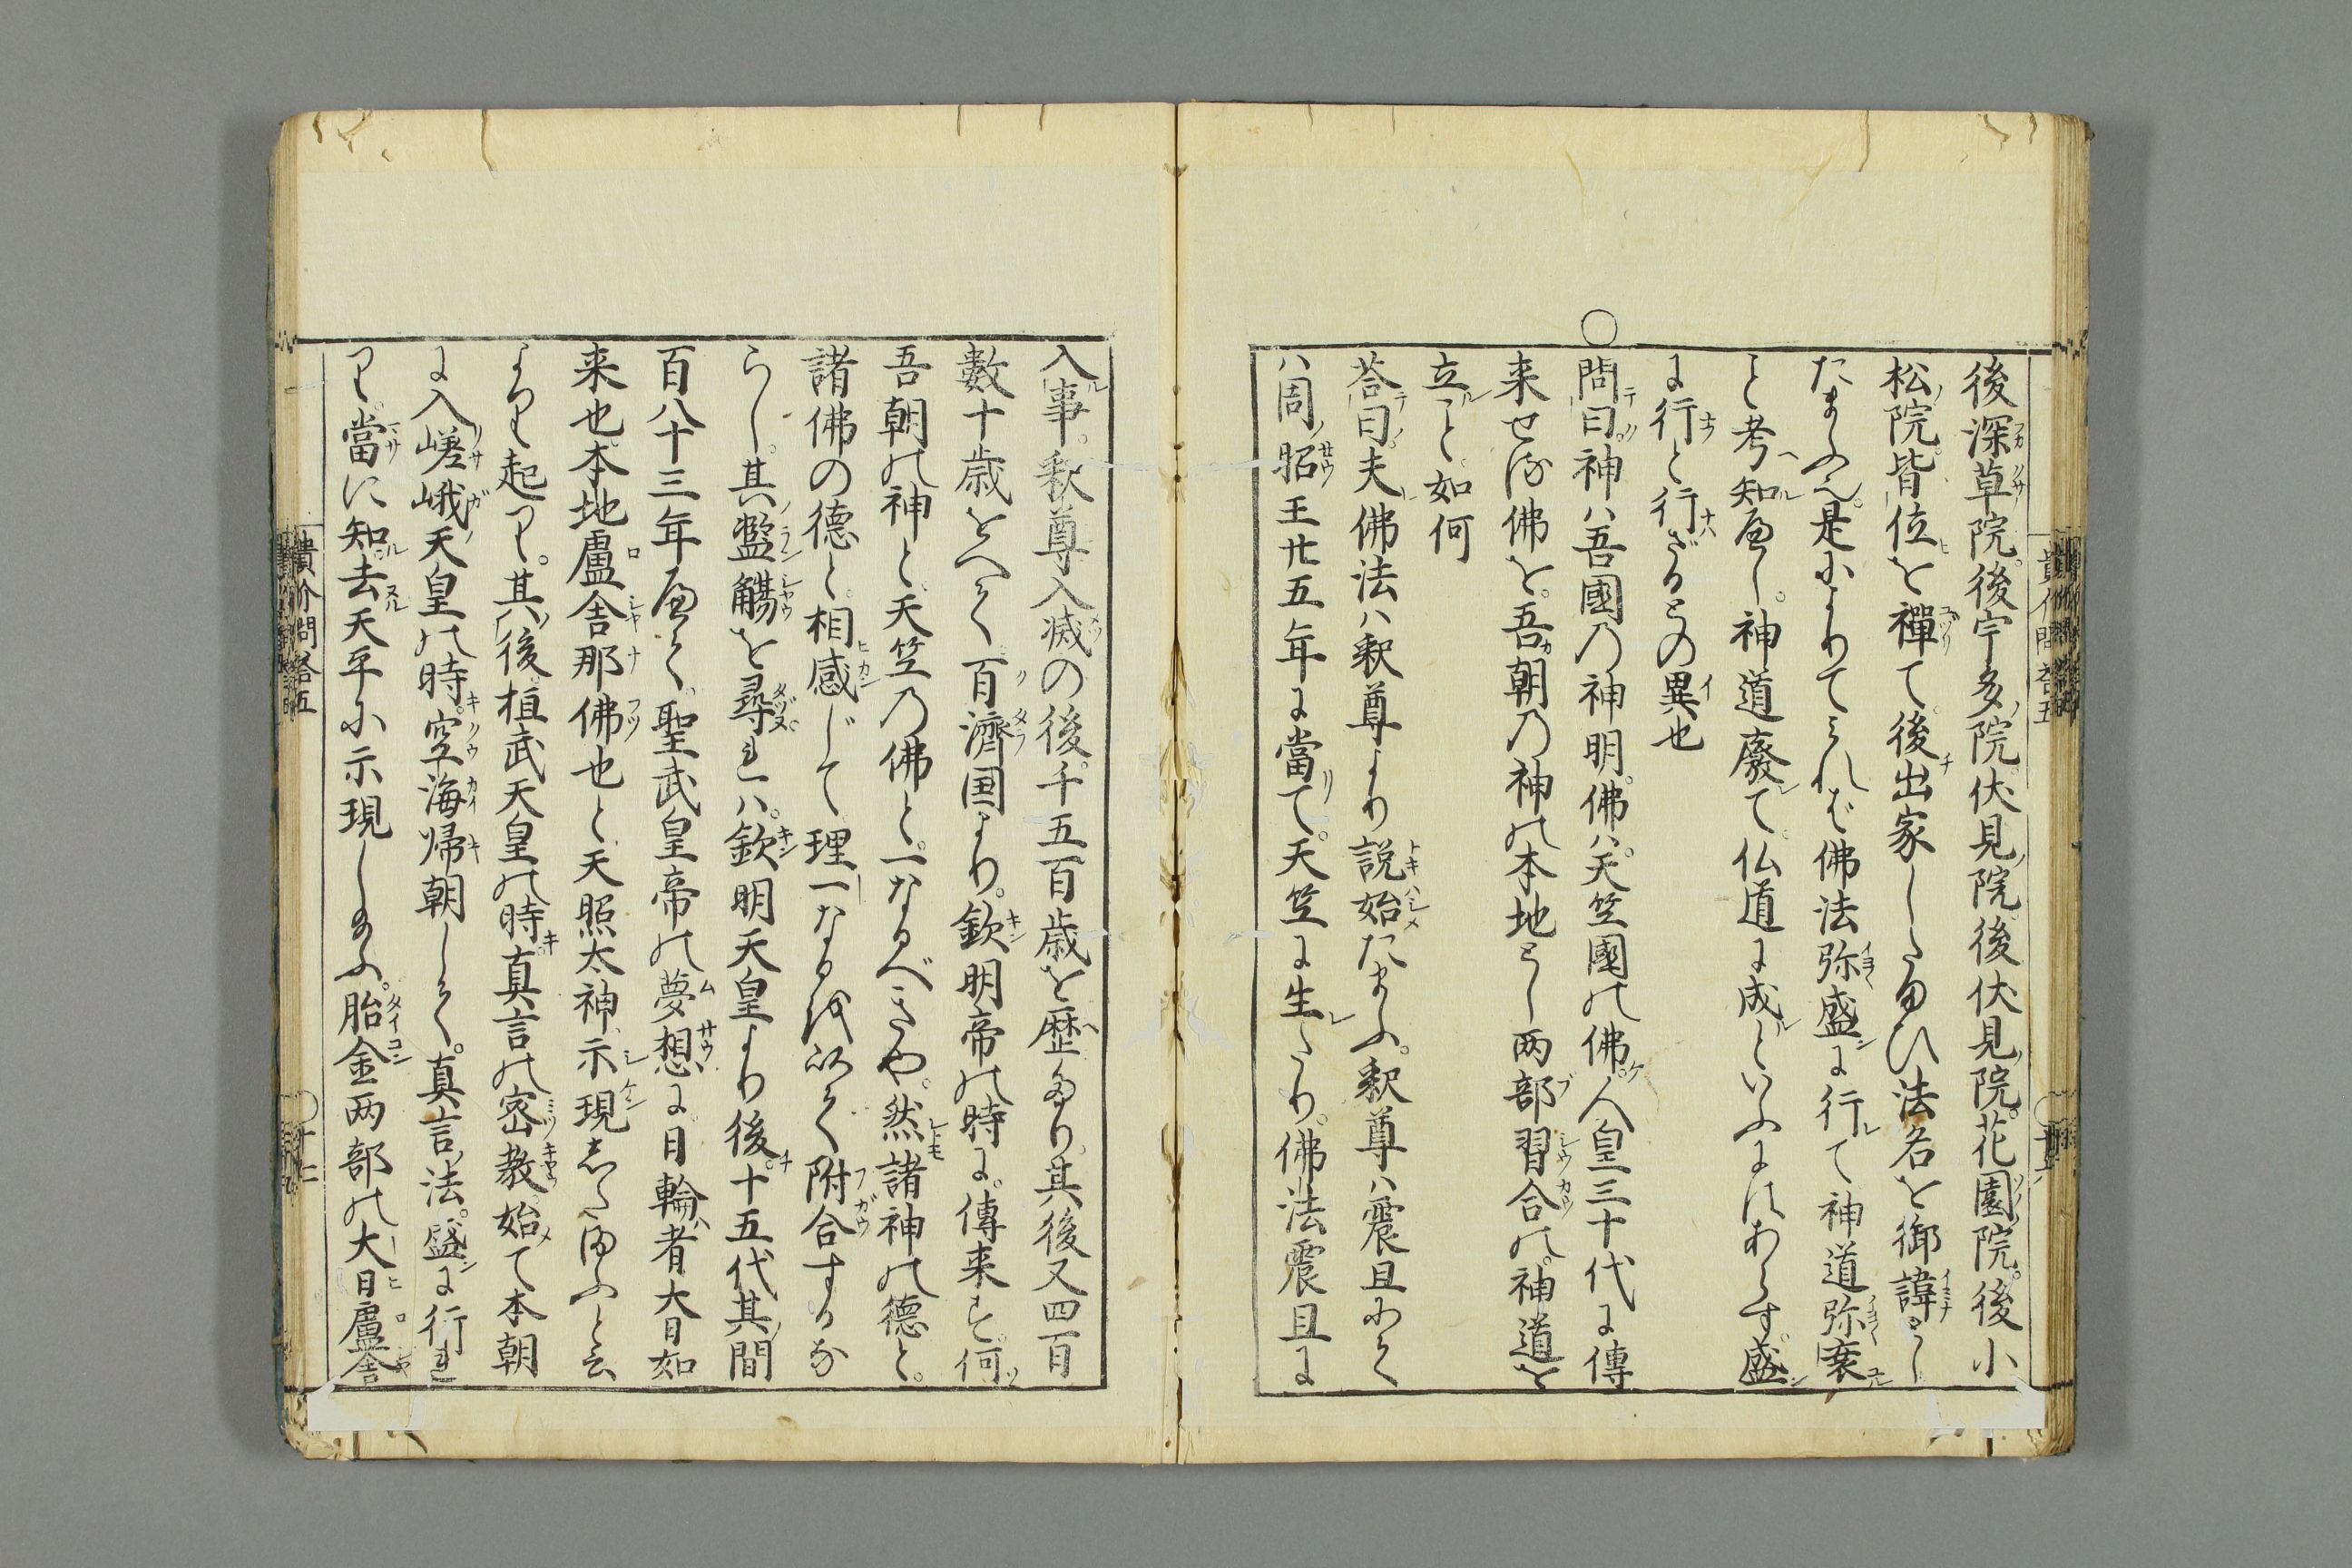 後深草院。後宇多院。伏見院。後伏見院。花園院。後小
松院。皆位を禪て後出家したまひ法名を御諱とし
たまふ也。是によりてみれば佛法弥盛に行て神道弥衰
こと考知べし。神道廢て仏道に成といふにはあらず。盛
に行と行ざるとの異也
○問曰。神ハ吾國乃神明。佛ハ天竺國の佛。人皇三十代に傳
来せる佛を。吾朝乃神の本地とし両部習合の。神道を
立こと如何
荅曰。夫佛法ハ釈尊より説始たまふ。釈尊ハ震旦にて
ハ周昭王廿五年に當て。天竺に生たり。佛法震旦に
入事。釈尊入滅の後。千五百歳を歴たり。其後又四百
數十歳をへて百濟国より。欽明帝の時に。傳来す。何
吾朝の神と。天竺乃佛と。一なるべきや。然諸神の德と。
諸佛の德と。相感じて理一なるを以て附合するな
らし。其濫觴を尋れハ。欽明天皇より後。十五代其間
百八十三年にして聖武皇帝の夢想に日輪者大日如
来也。本地盧舎那佛也と天照太神示現したまふと云
より起り。其後桓武天皇の時真言の密教始て本朝
に入嵯峨天皇の時。空海帰朝して。真言法。盛に行れ
り。當に知去天平に示現し給ふ。胎金両部の大日盧舎
貴介問荅五
貴介問荅五
○十二